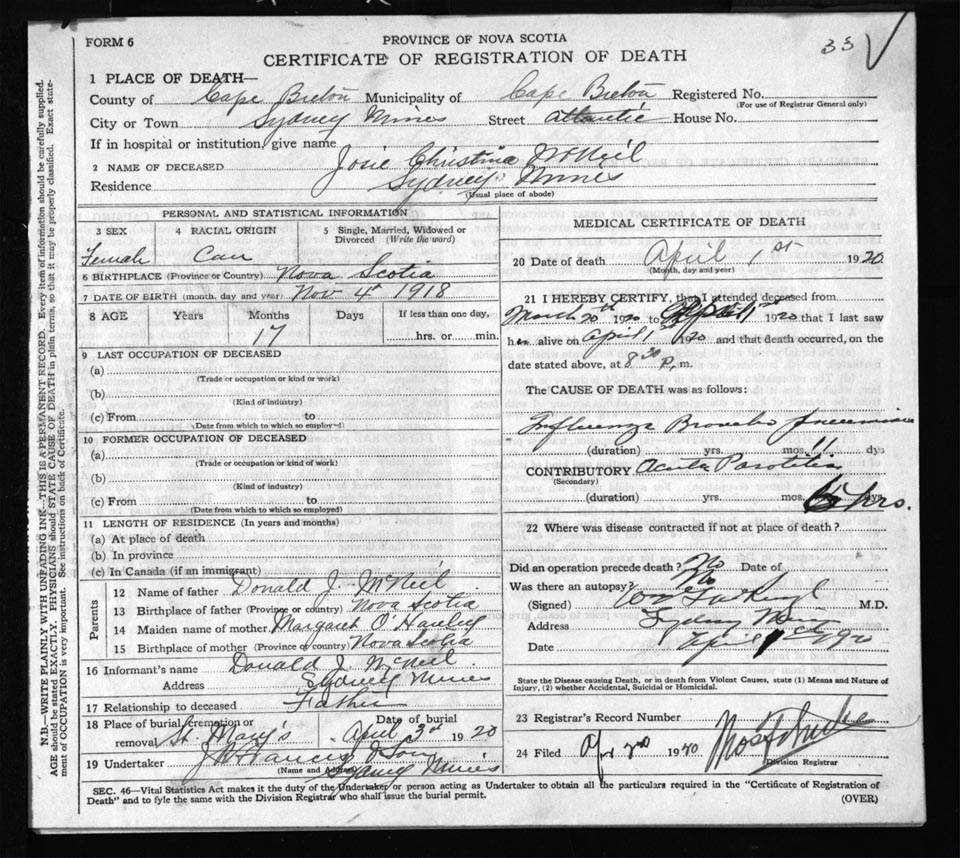 FORM 6
PROVINCE OF NOVA SCOTIA
33
CERTIFICATE OF REGISTRATION OF DEATH
1 PLACE OF DEATH—
County of Cape Breton Municipality of Cape Breton Registered No.
(For use of Registrar General only)
City or Town Sydney Mines Street Atlantic House No.
If in hospital or institution, give name
2 NAME OF DECEASED Josie Christina McNeil
Residence Sydney Mines
(Usual place of abode)
PERSONAL AND STATISTICAL INFORMATION
3 SEX 4 RACIAL ORIGIN 5 Single, Married, Widowed or Divorced (Write the word)
Female Can
6 BIRTHPLACE (Province or Country) Nova Scotia
7 DATE OF BIRTH (month, day and year) Nov 4th 1918
8 AGE Years Months Days If less than one day,
17 hrs. or min.
9 LAST OCCUPATION OF DECEASED
(a)
(Trade or occupation or kind or work)
(b)
(Kind of industry)
(c) From to
(Date from which to which so employed)
10 FORMER OCCUPATION OF DECEASED
(a)
(Trade or occupation or kind of work)
(b)
(Kind of industry)
(c) From to
(Date from which to which so employed)
11 LENGTH OF RESIDENCE (In years and months)
(a) At place of death
(b) In province
(c) In Canada (if an immigrant)
Parents
12 Name of father Donald J. McNeil
13 Birthplace of father (Province or country) Nova Scotia
14 Maiden name of mother Margaret O'Hanley
15 Birthplace of mother (Province or country) Nova Scotia
16 Informant's name Donald J. McNeil
Address Sydney Mines
17 Relationship to deceased Father
18 Place of burial, cremation or removal St. Mary's Date of burial April 3rd 1920
19 Undertaker & Son
(Name and Address) Sydney Mines
MEDICAL CERTIFICATE OF DEATH
20 Date of death April 1st 1920
(Month, day and year)
21 I HEREBY CERTIFY, that I attended deceased from
March 20th 1920 to April 1st 1920 that I last saw
her alive on April 1st 1920 and that death occurred, on the
date stated above, at 8 30 P.m.
The CAUSE OF DEATH was as follows:
Influenza Broncho Pneumonia
(duration) yrs. mos. 11 dys
CONTRIBUTORY Acute Parotitis
(Secondary)
(duration) yrs. mos. dys. hrs.
22 Where was disease contracted if not at place of death?
Did an operation precede death? No Date of
Was there an autopsy? No
(Signed) M.D.
Address Sydney Mines
Date April 1st 1920
State the Disease causing Death, or in death from Violent Causes, state (1) Means and Nature of Injury, (2) whether Accidental, Suicidal or Homicidal.
23 Registrar's Record Number
24 Filed Apr 2nd 1920
Division Registrar
SEC. 46—Vital Statistics Act makes it the duty of the Undertaker or person acting as Undertaker to obtain all the particulars required in the "Certificate of Registration of
Death" and to fyle the same with the Division Registrar who shall issue the burial permit.
(OVER)
N.B.—WRITE PLAINLY WITH UNFADING INK—THIS IS A PERMANENT RECORD. Every item of information should be carefully supplied.
AGE should be stated EXACTLY. PHYSICIANS should STATE CAUSE OF DEATH in plain terms, so that it may be properly classified. Exact state-
ment of OCCUPATION is very important. See instructions on back of Certificate.